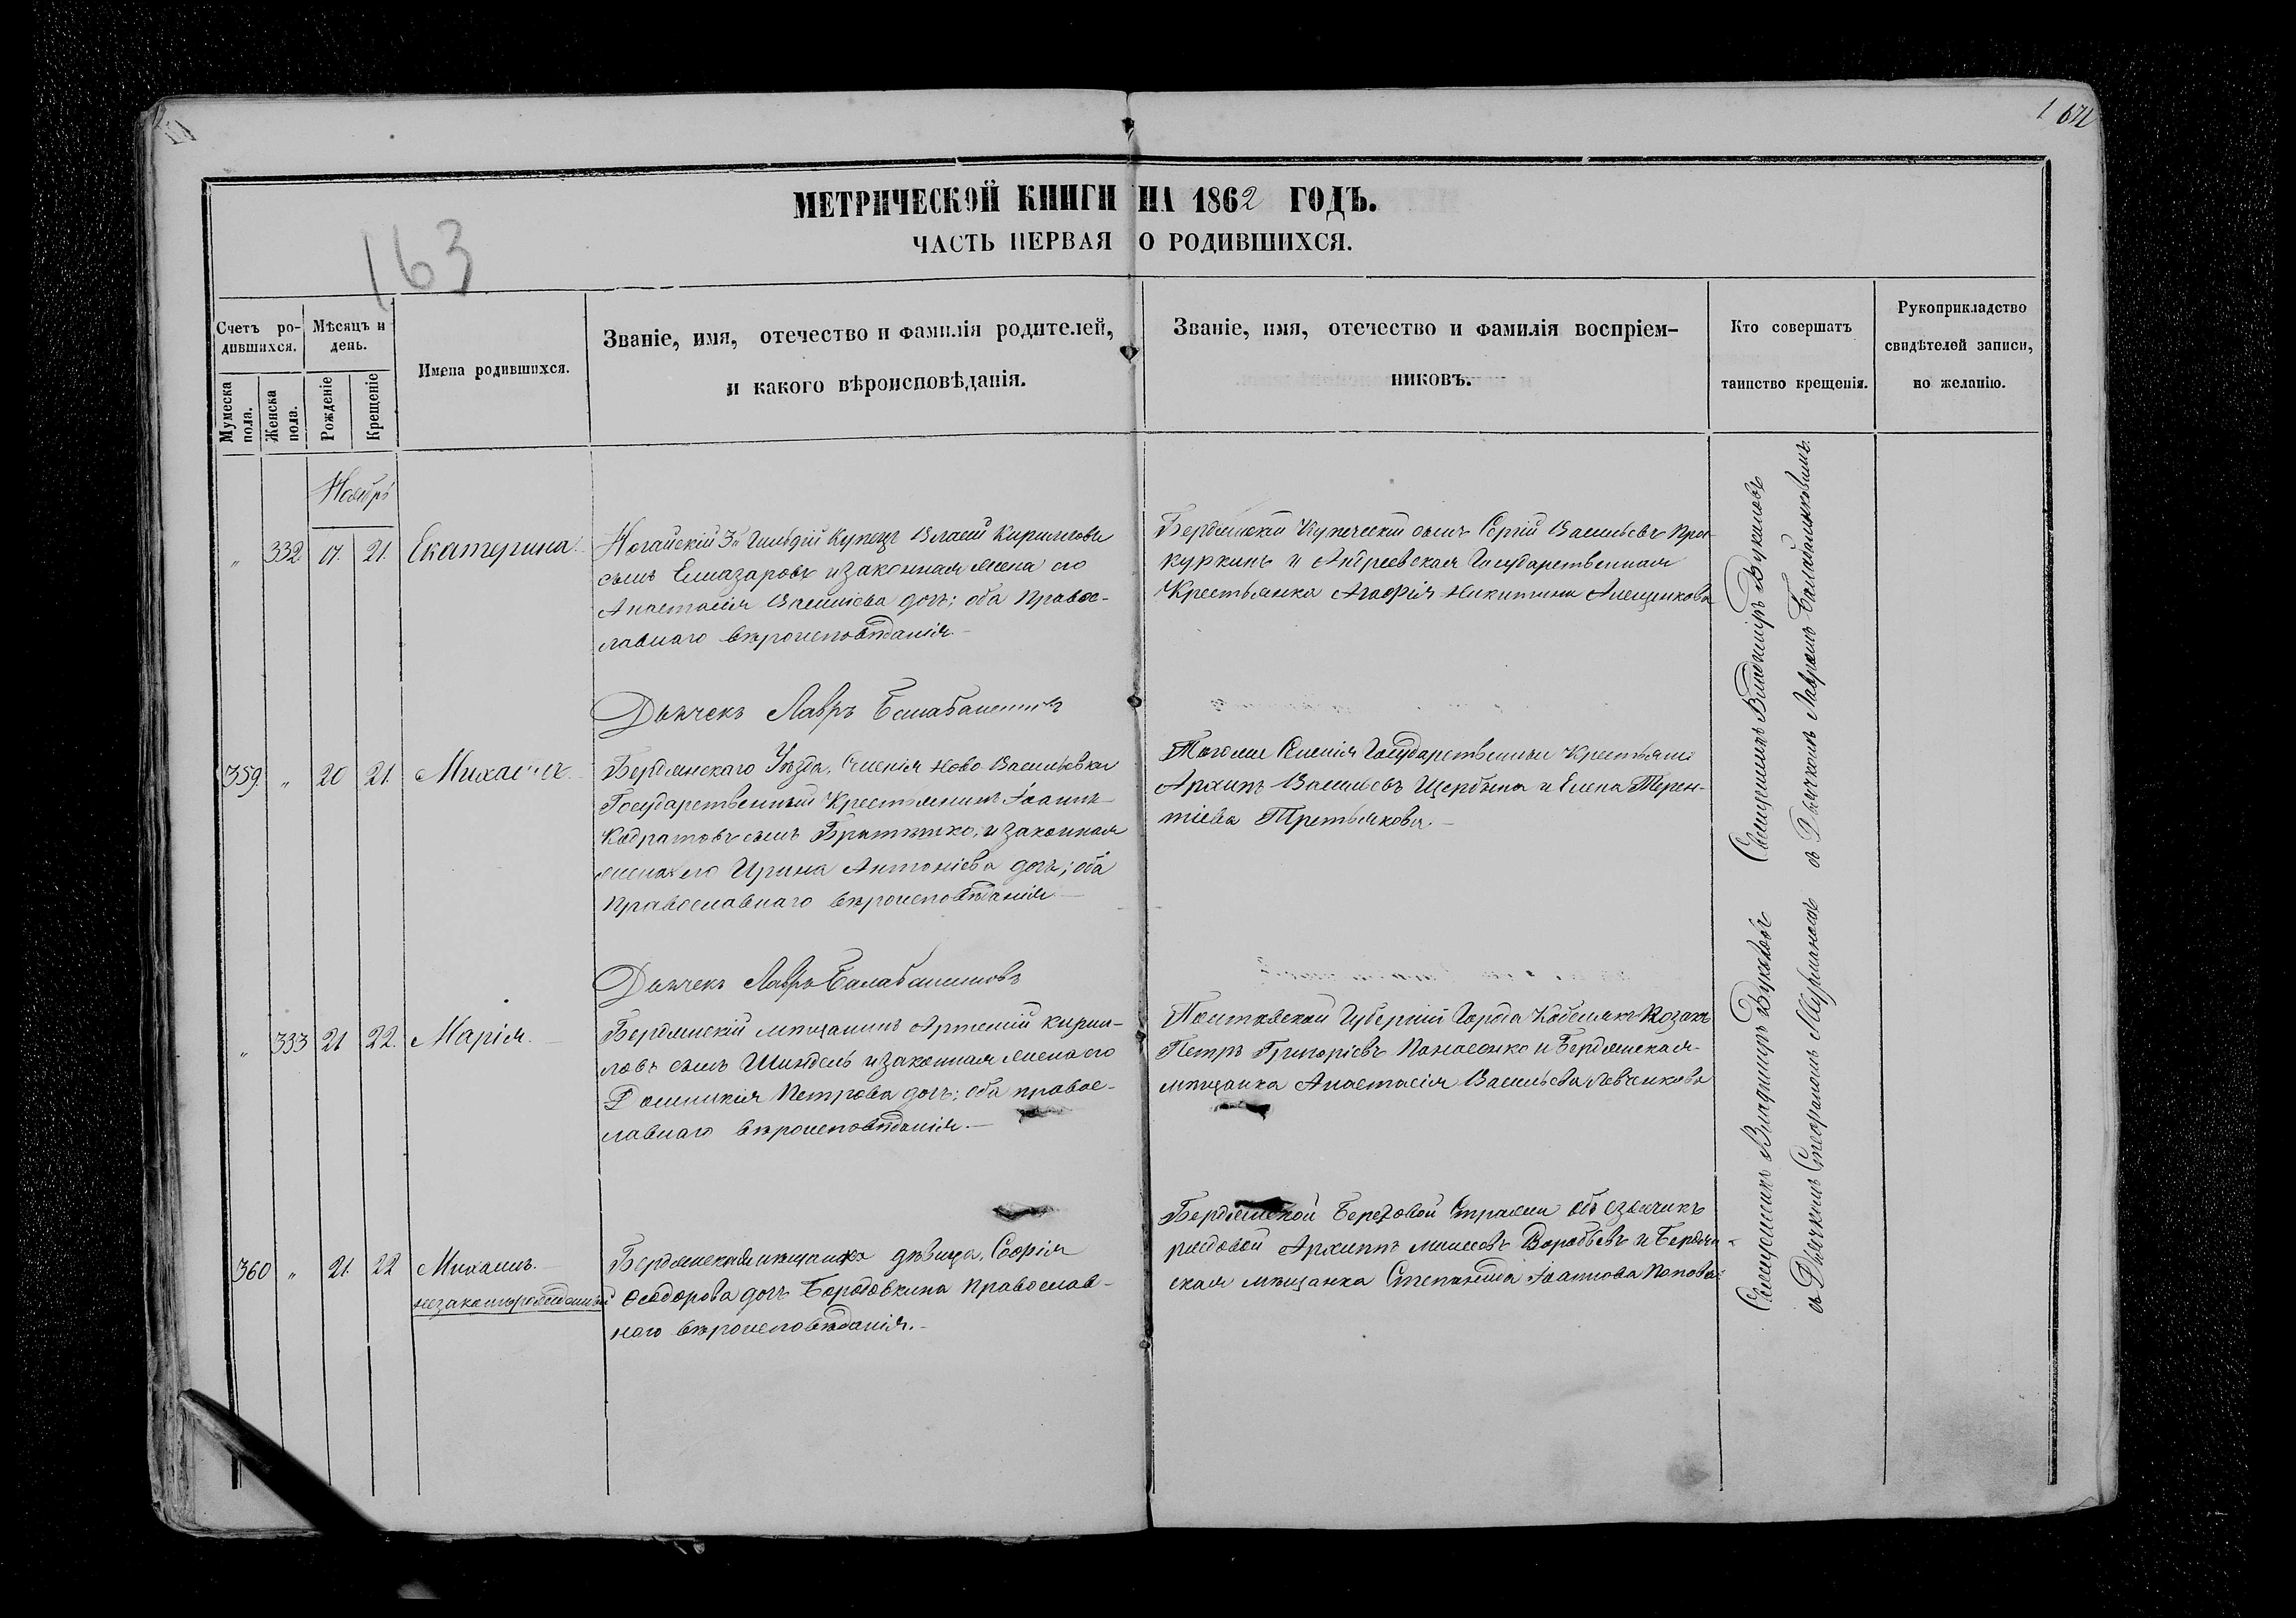 1 672
МЕТРИЧЕСКОЙ КНИГИ НА 1862 ГОДЪ.
ЧАСТЬ ПЕРВАЯ О РОДИВШИХСЯ.
163
Счетъ ро-
дившихся.
Мѣсяцъ и
день.
Мужеска
пола.
Женска
пола.
Рожденіе
Крещеніе
Имена родившихся.
Званіе, имя, отечество и фамилія родителей,
и какого вѣроисповѣданія.
Званіе, имя, отечество и фамилія воспріем-
никовъ.
Кто совершатъ
таинство крещенія.
Рукоприкладство
свидѣтелей записи,
по желанію.
Ноябрь
" 332 21. Екатерина
Ногайскій 3й Гильдіи Купецъ Власій Кирилловъ
сынъ Елиазаровъ и законная жена его
Анастасія Василіева дочь; оба Правос-
лавнаго вѣроисповѣданія.
Бердянскій Купеческій сынъ Сергій Васильевъ Про-
куркинъ и Андреевская Государственная
Крестьянка Агафія Никитина Алещенкова
Дьячекъ Лавръ Балабаненковъ
359. " 20 21. Михаилъ.
Бердянскаго Уѣзда, Селенія Ново-Васильевки
Государственный Крестьянинъ Іоаннъ
Кодратовъ сынъ и законная
жена его Ирина Антоніева дочь; оба
Православнаго вѣроисповѣданія
Тогоже Селенія Государственные Крестьяне
Архипъ Васильевъ Щербина и Елена Терен-
тіева Третьякова.
Дьячекъ Лавръ Балабаненковъ
" 333 21 22. Марія.
Бердянскій мѣщанинъ Артемій Кирил-
ловъ сынъ Шиндель и законная жена его
Домникія Петрова дочь; оба правос-
лавнаго вѣроисповѣданія.
Полтавской Губерніи Города Кобелякъ Козакъ
Петръ Григоріевъ Панасенко и Бердянская
мѣщанка Анастасія Васильева Левченкова
360 " 21. 22 Михаилъ.
незаконнорожденный
Бердянская мѣщанка дѣвица, Софія
Ѳеодорова дочь Бородовкина Православ-
наго вѣроисповѣданія.
Бердянской Береговой Стражи объѣздчикъ
рядовой Архиппъ Воробьевъ и Бердян-
ская мѣщанка Степанида Іоаннова Попова
Священникъ Владиміръ
съ Дьячкомъ Лавромъ Балабаненковымъ.
Священникъ Владиміръ
съ Дьячкомъ Стефаномъ